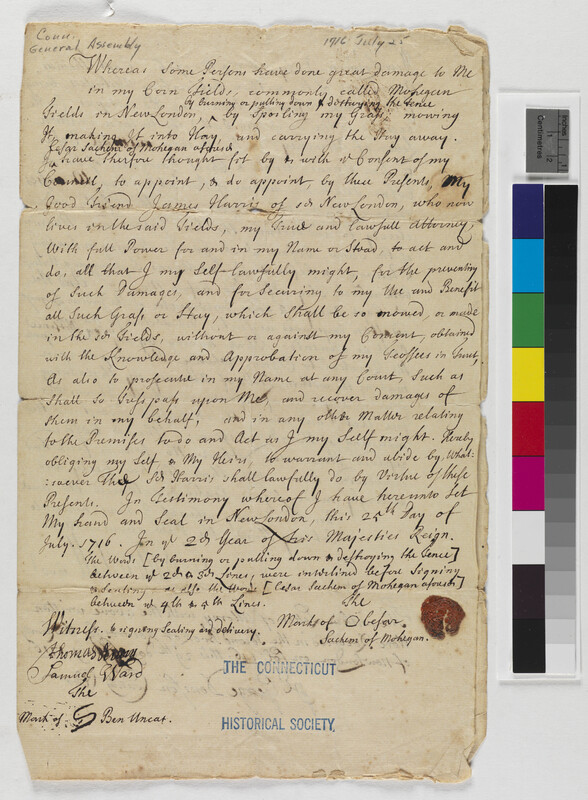 Conn.
General Assembly
1716 July 25
Whereas Some Persons have done great damage to Me
in my Corn Fields, commonly called Mohegan
by burning or pulling down & destroying the fence
Fields in New London, by Spoiling my Grass mowing
It, making It into Hay, and carrying the Hay away.
Cesar Sachem of Mohegan afoused
I have therfore thought fit by & with ye Consent of my
Council, to appoint, & do appoint by these Presents, My
Good Friend James Harris of sd New London, who now
lives in the said Fields, my True and Lawfull Attorney,
With full Power for and in my Name or Stead, to act and
do, all that I my Self lawfully might, for the preventing
of Such Damages, and for Securing to my Use and Benefit
all Such Grass or Hay, which Shall be so mowed, or made
in the sd Fields, without or against my Consent, obtained
with the Knowledge and Approbation of my Feoffees in Trust,
As also to prosecute in my Name at any Court, Such as
Shall So Tresspass upon Me, and recover damages of
them in my behalf, and in any other Matter relating
to the Premises to do and Act as I my Self might. Hereby
obliging my Self & My Heirs, to warrant and abide by What-
:soever The sd Harris Shall lawfully do by Virtue of these
Presents. In Testimony whereof I have hereunto Set
My hand and Seal in New London, this 25th Day of
July. 1716. In ye 2d Year of his Majesties Reign.
The Words [by burning or pulling down & destroying the Fence]
between ye 2d & 3d Lines, were interlined before Signing
& Sealing as also the Words [Cesar Sachem of Mohegan afousd]
between ye 4th & 5th Lines.
The
Witness. to signing Sealing and delivery.
Marks of O Cesar
Sachem of Mohegan.
Thomas
Samuel Ward
The
Mark of Ben Uncas.
THE CONNECTICUT
HISTORICAL SOCIETY
Centimetres
Inches